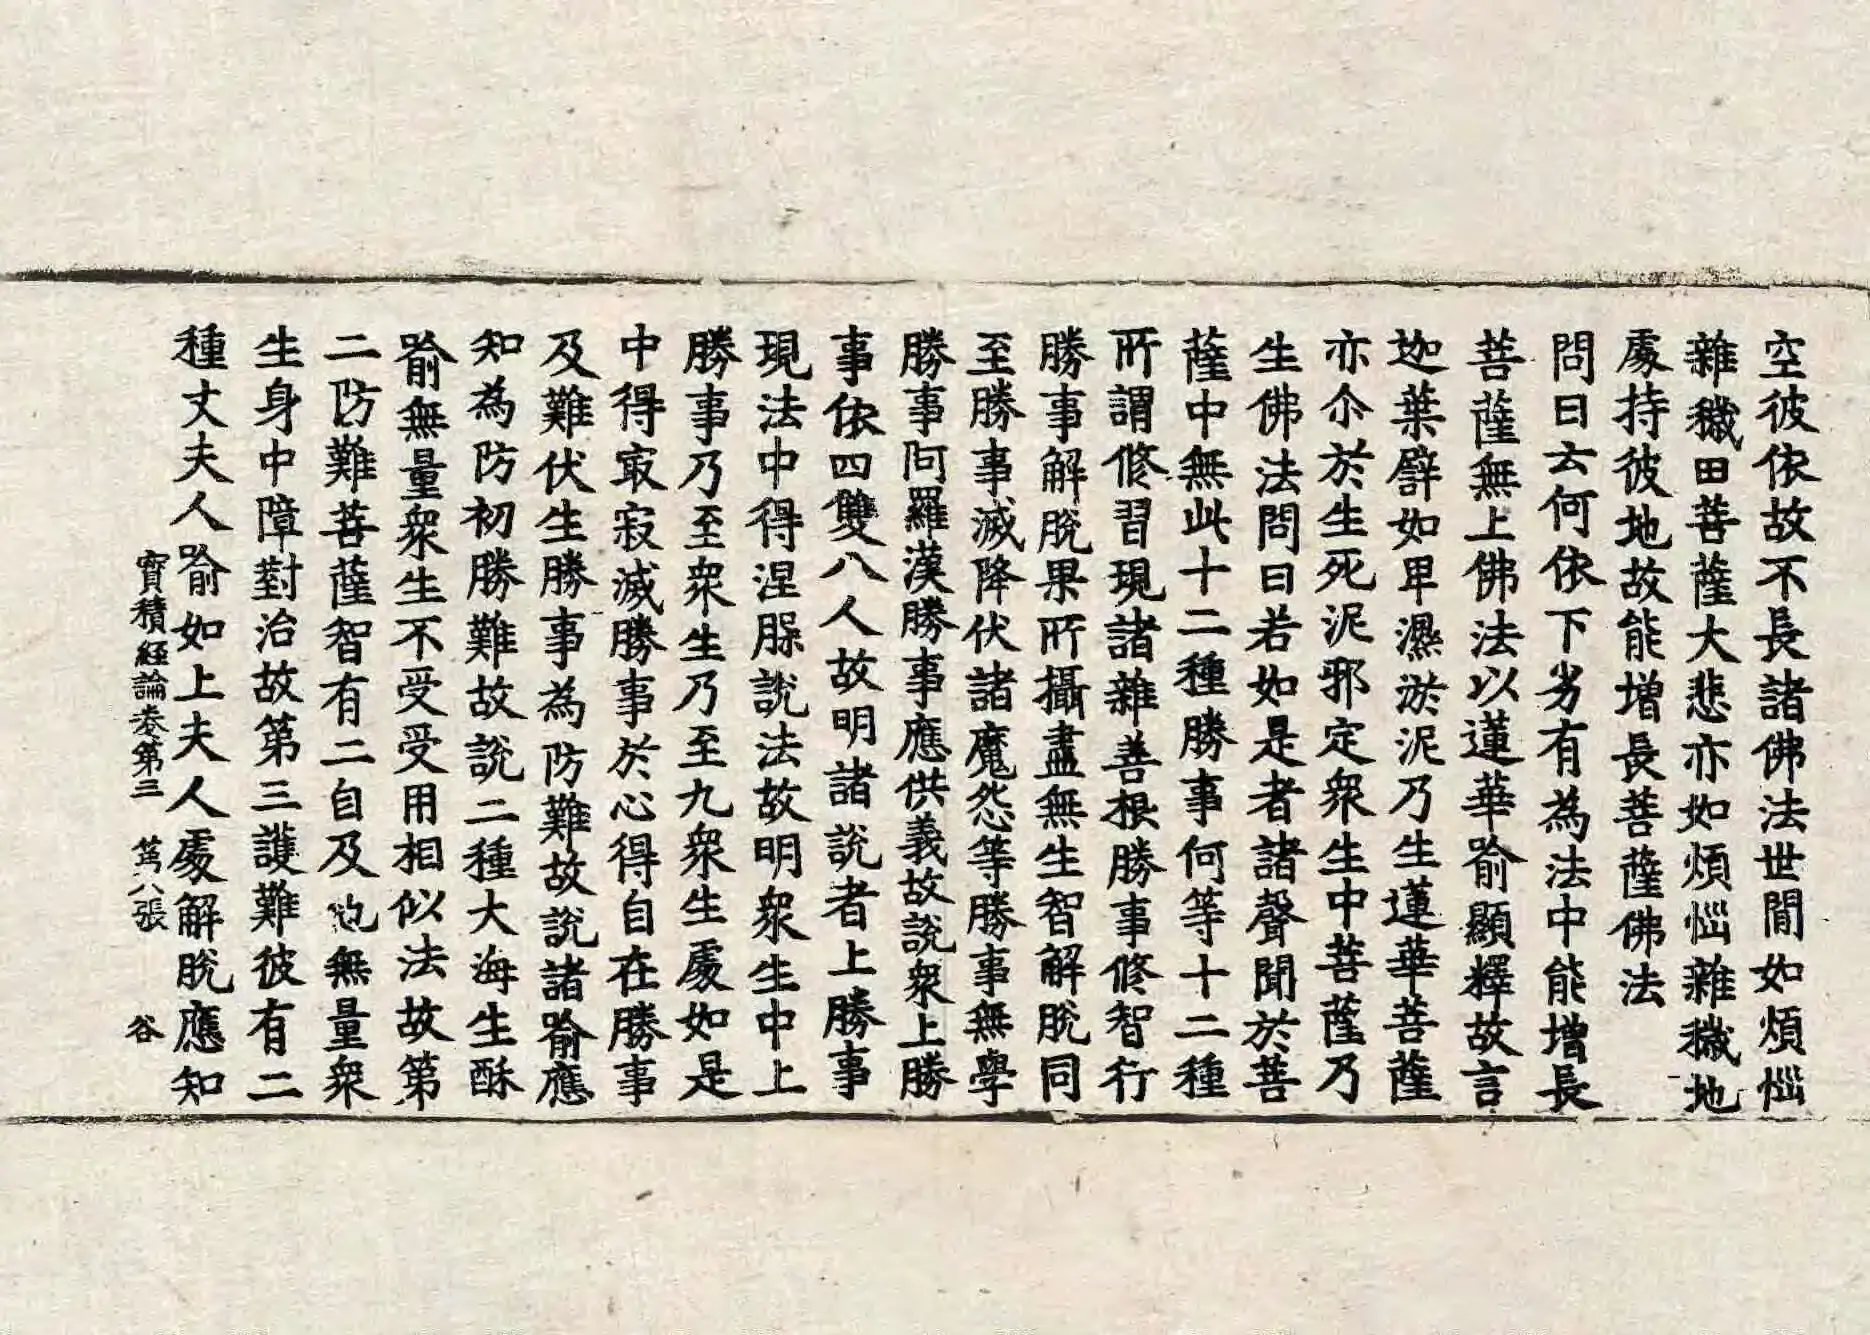 空彼依故不長諸佛法世間如煩惱
雜穢田菩薩大悲亦如煩惱雜穢地
處持彼地故能增長菩薩佛法
問曰云何依下劣有為法中能增長
菩薩無上佛法以蓮華喻顯釋故言
迦葉譬如卑濕淤泥乃生蓮華菩薩
亦尒於生死泥邪定衆生中菩薩乃
生佛法問曰若如是者諸聲聞於菩
薩中無此十二種勝事何等十二種
所謂修習現諸雜善根勝事修智行
勝事解脫果所攝盡無生智解脫同
至勝事滅降伏諸魔怨等勝事無學
勝事阿羅漢勝事應供義故說衆上勝
事依四雙八人故明諸說者上勝事
現法中得涅槃說法故明衆生中上
勝事乃至衆生乃至九衆生處如是
中得寂寂滅勝事於心得自在勝事
及難伏生勝事為防難故說諸喻應
知為防初勝難故說二種大海生酥
喻無量衆生不受受用相似法故第
二防難菩薩智有二自及他無量衆
生身中障對治故第三護難彼有二
種丈夫人喻如上夫人處解脫應知
寶積經論卷第三 第八張 谷